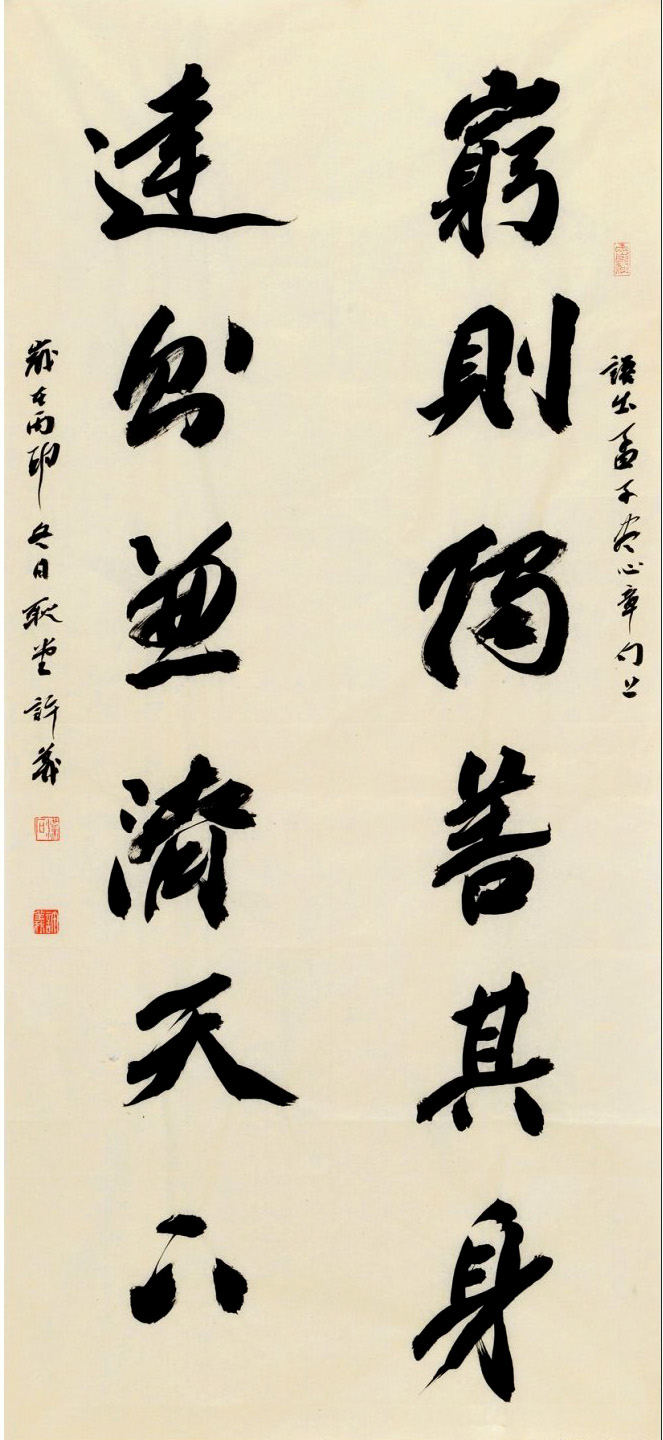 語出孟子尽心章句上
窮則獨善其身
達則兼濟天下
歲在丙申冬日耿堂許